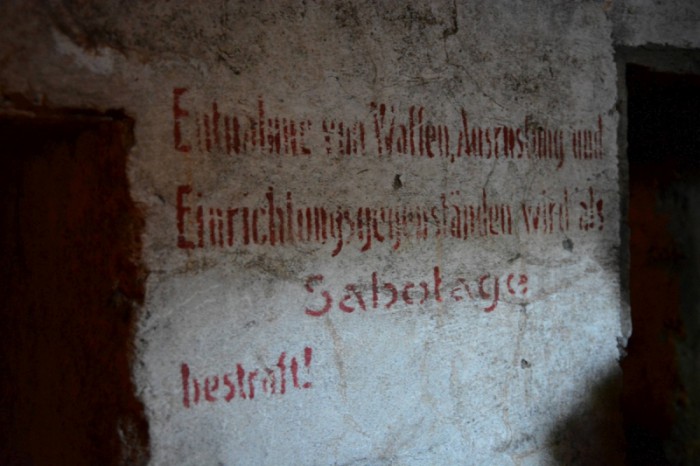 Entnahme von Waffen, Ausrüstung und
Einrichtungsgegenständen wird als
Sabotage
bestraft!